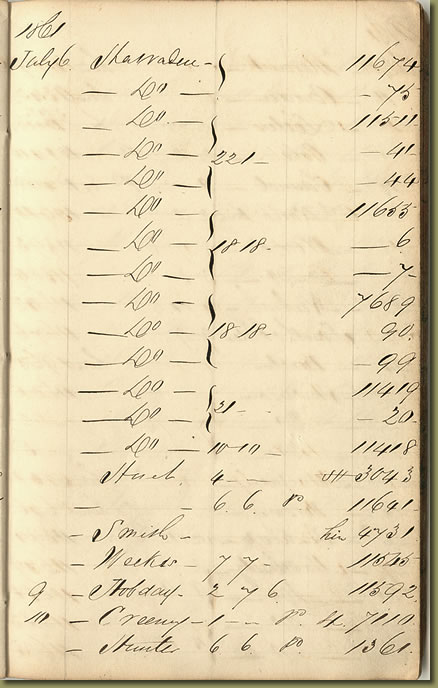 1861
July 6. Shawadeu - 11674
— Do — - 75
— Do — 11511
— Do — 221 - — 41
— Do — — 44
— Do — 11653
— Do — 18 18 - — 6
— Do — — 7
— Do — 7689
— Do — 18 18 - 90
— Do — - 99
— Do — 11419
— Do — 21 - - 20
— Do — 10 10 - 11418
4 - - 3043
— — 6. 6. 11641
- Smith - 4731
- Weekes - 7 7 - 11545
9 - Hobday - 2 7 6. 11592
10 - Creeny - 1 - - 4. 7110
- Hunter 6 6. 1361